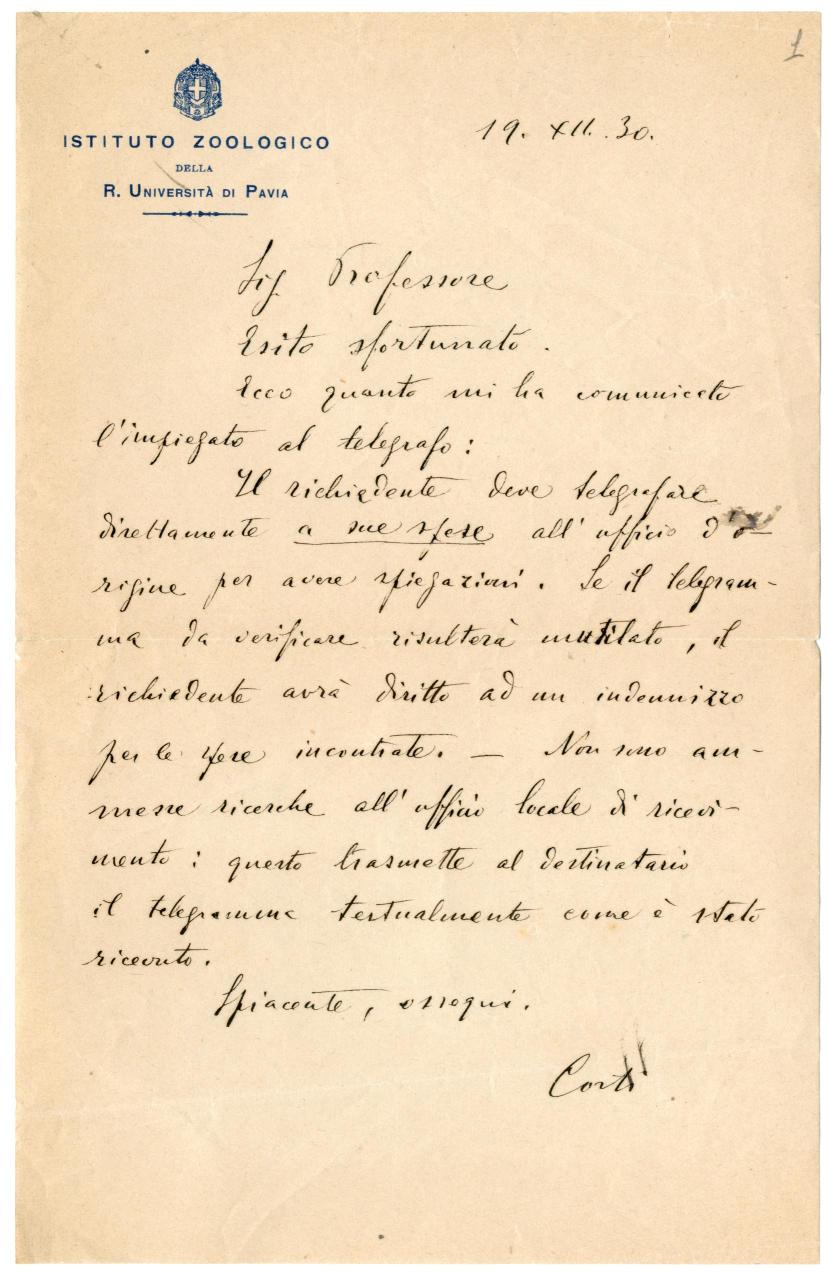 1
ISTITUTO ZOOLOGICO
DELLA
R. UNIVERSITÀ DI PAVIA
19. XII. 30.
Sig Professore
Esito sfortunato.
Ecco quanto mi ha comunicato
l'impiegato al telegrafo:
Il richiedente deve telegrafare
direttamente a sue spese all'ufficio d'o-
rigine per avere spiegazioni. Se il telegram-
ma da verificare risulterà mutilato, il
richiedente avrà diritto ad un indennizzo
per le spese incontrate. — Non sono am-
messe ricerche all'ufficio locale di ricevi-
mento: questo trasmette al destinatario
il telegramma testualmente come è stato
ricevuto.
Spiacente, ossequi.
Corti